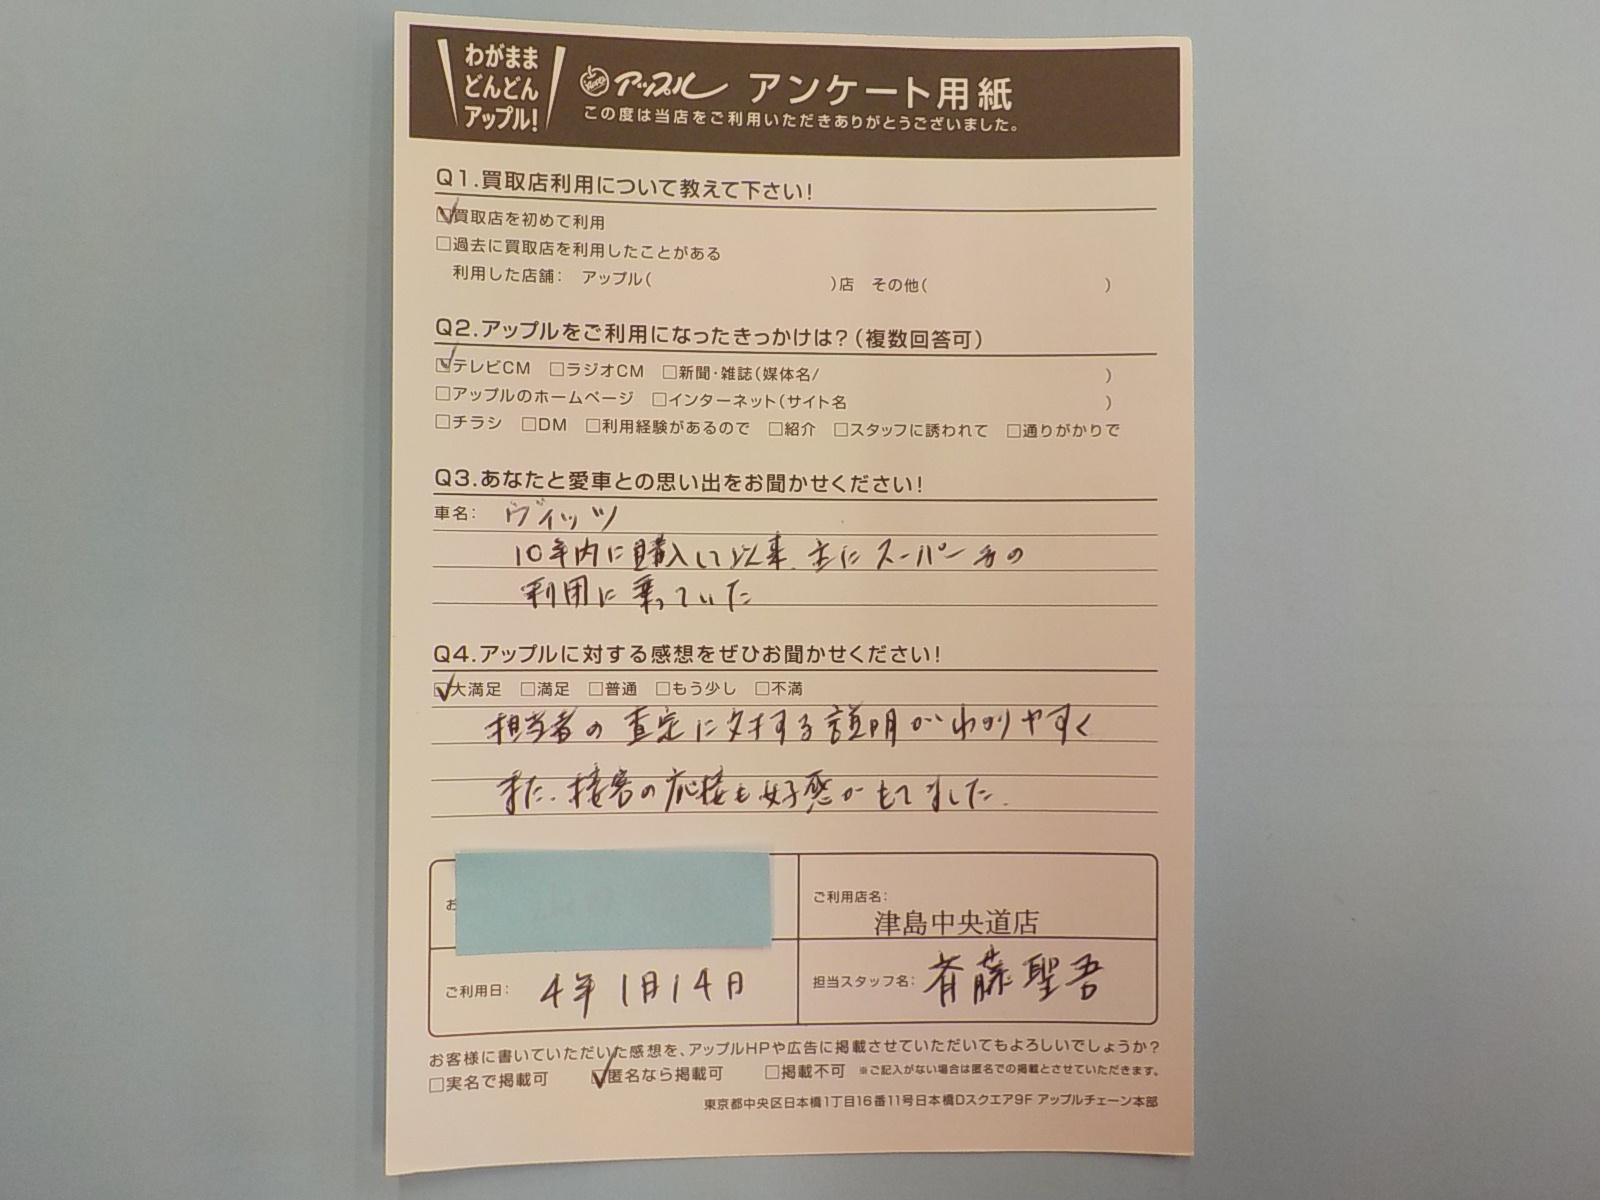 わがまま
どんどん
アップル!
アップル アンケート用紙
この度は当店をご利用いただきありがとうございました。
Q1.買取店利用について教えて下さい!
☑買取店を初めて利用
□過去に買取店を利用したことがある
利用した店舗: アップル( )店 その他( )
Q2.アップルをご利用になったきっかけは?(複数回答可)
☑テレビCM □ラジオCM □新聞・雑誌(媒体名/ )
□アップルのホームページ □インターネット(サイト名 )
□チラシ □DM □利用経験があるので □紹介 □スタッフに誘われて □通りがかりで
Q3.あなたと愛車との思い出をお聞かせください!
車名: ヴィッツ
10年内に購入して以来、主にスーパー等の
利用に乗っていた
Q4.アップルに対する感想をぜひお聞かせください!
☑大満足 □満足 □普通 □もう少し □不満
担当者の査定に対する説明がわかりやすく
また、接客の応接も好感がもてました。
お
ご利用店名:
津島中央道店
ご利用日: 4年1月14日
担当スタッフ名: 斉藤聖吾
お客様に書いていただいた感想を、アップルHPや広告に掲載させていただいてもよろしいでしょうか?
□実名で掲載可 ☑匿名なら掲載可 □掲載不可 ※ご記入がない場合は匿名での掲載とさせていただきます。
東京都中央区日本橋1丁目16番11号日本橋Dスクエア9F アップルチェーン本部